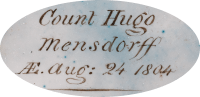 Count Hugo
Mensdorff
Æ. Aug: 24 1804